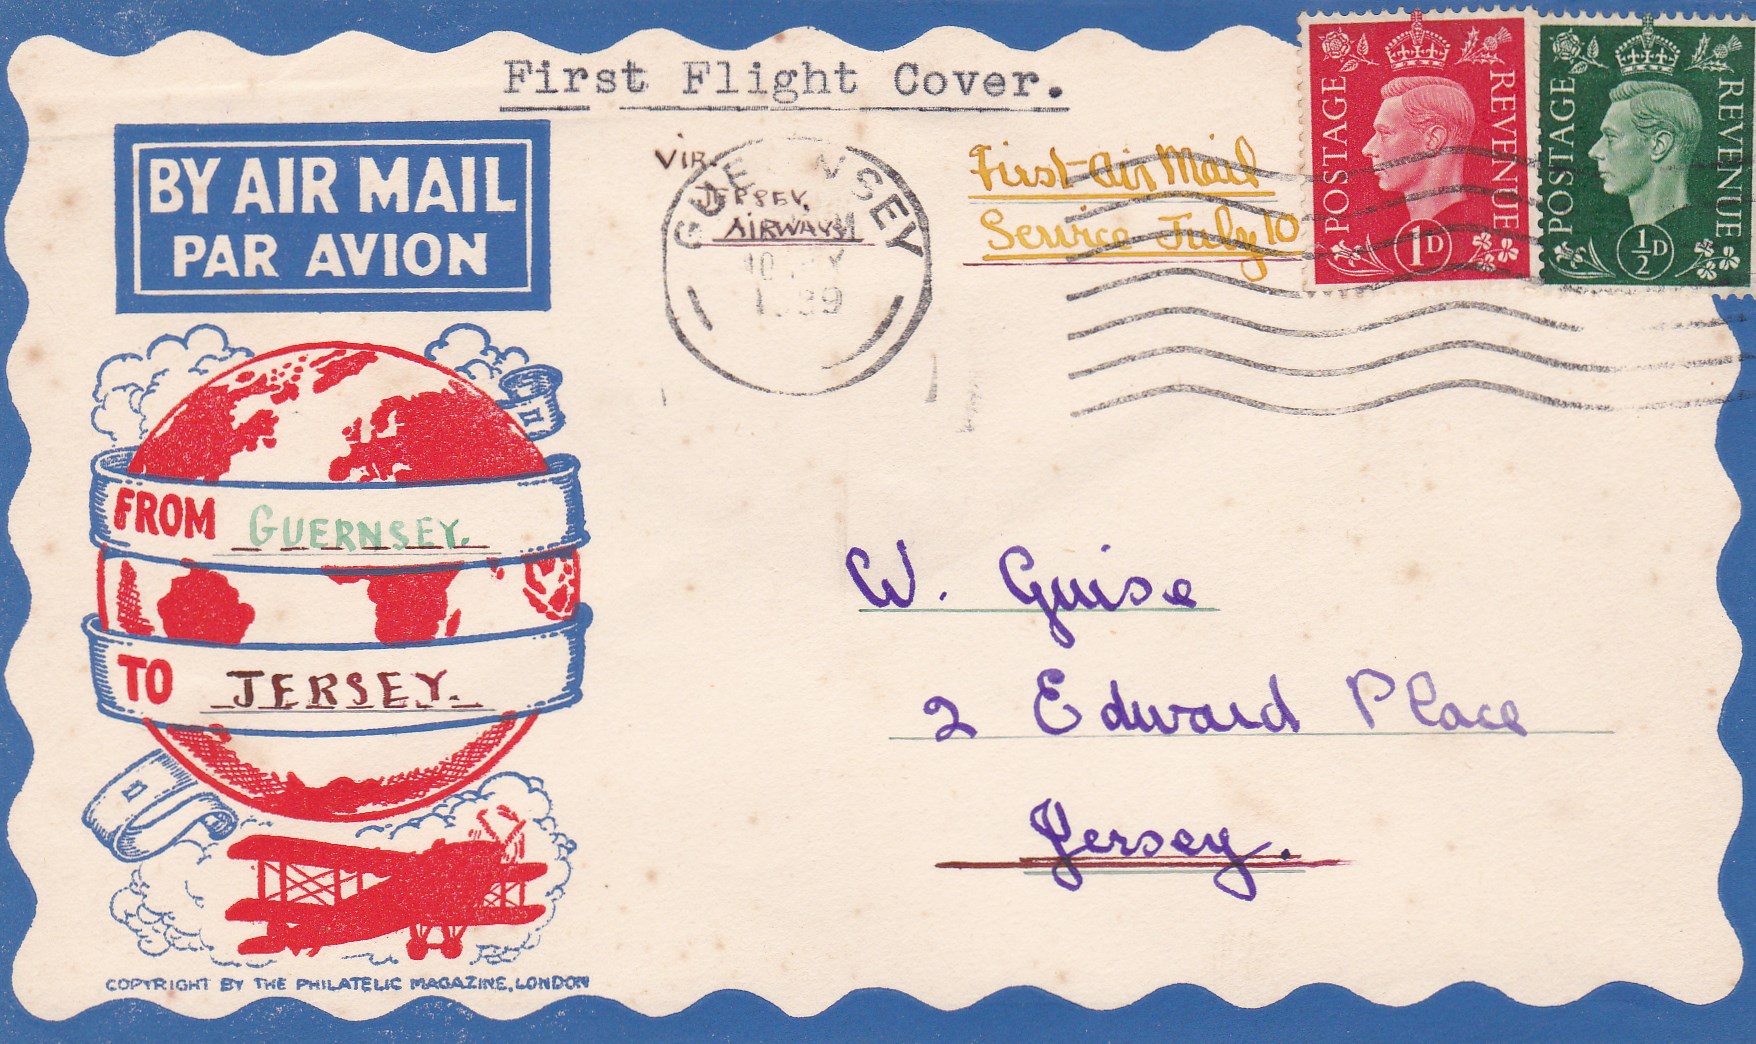 First Flight Cover.
BY AIR MAIL
PAR AVION
VIA.
JERSEY.
AIRWAYS
GUERNSEY
10
1939
First Air Mail
Service July 10
POSTAGE REVENUE
1D
POSTAGE REVENUE
½D
FROM GUERNSEY.
TO JERSEY.
W. Guise
2 Edward Place
Jersey.
COPYRIGHT BY THE PHILATELIC MAGAZINE, LONDON